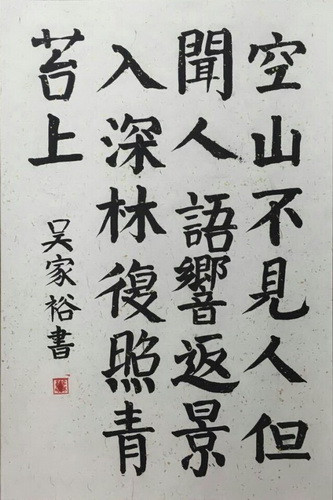 空山不見人但
聞人語響返景
入深林復照青
苔上
吴家裕書